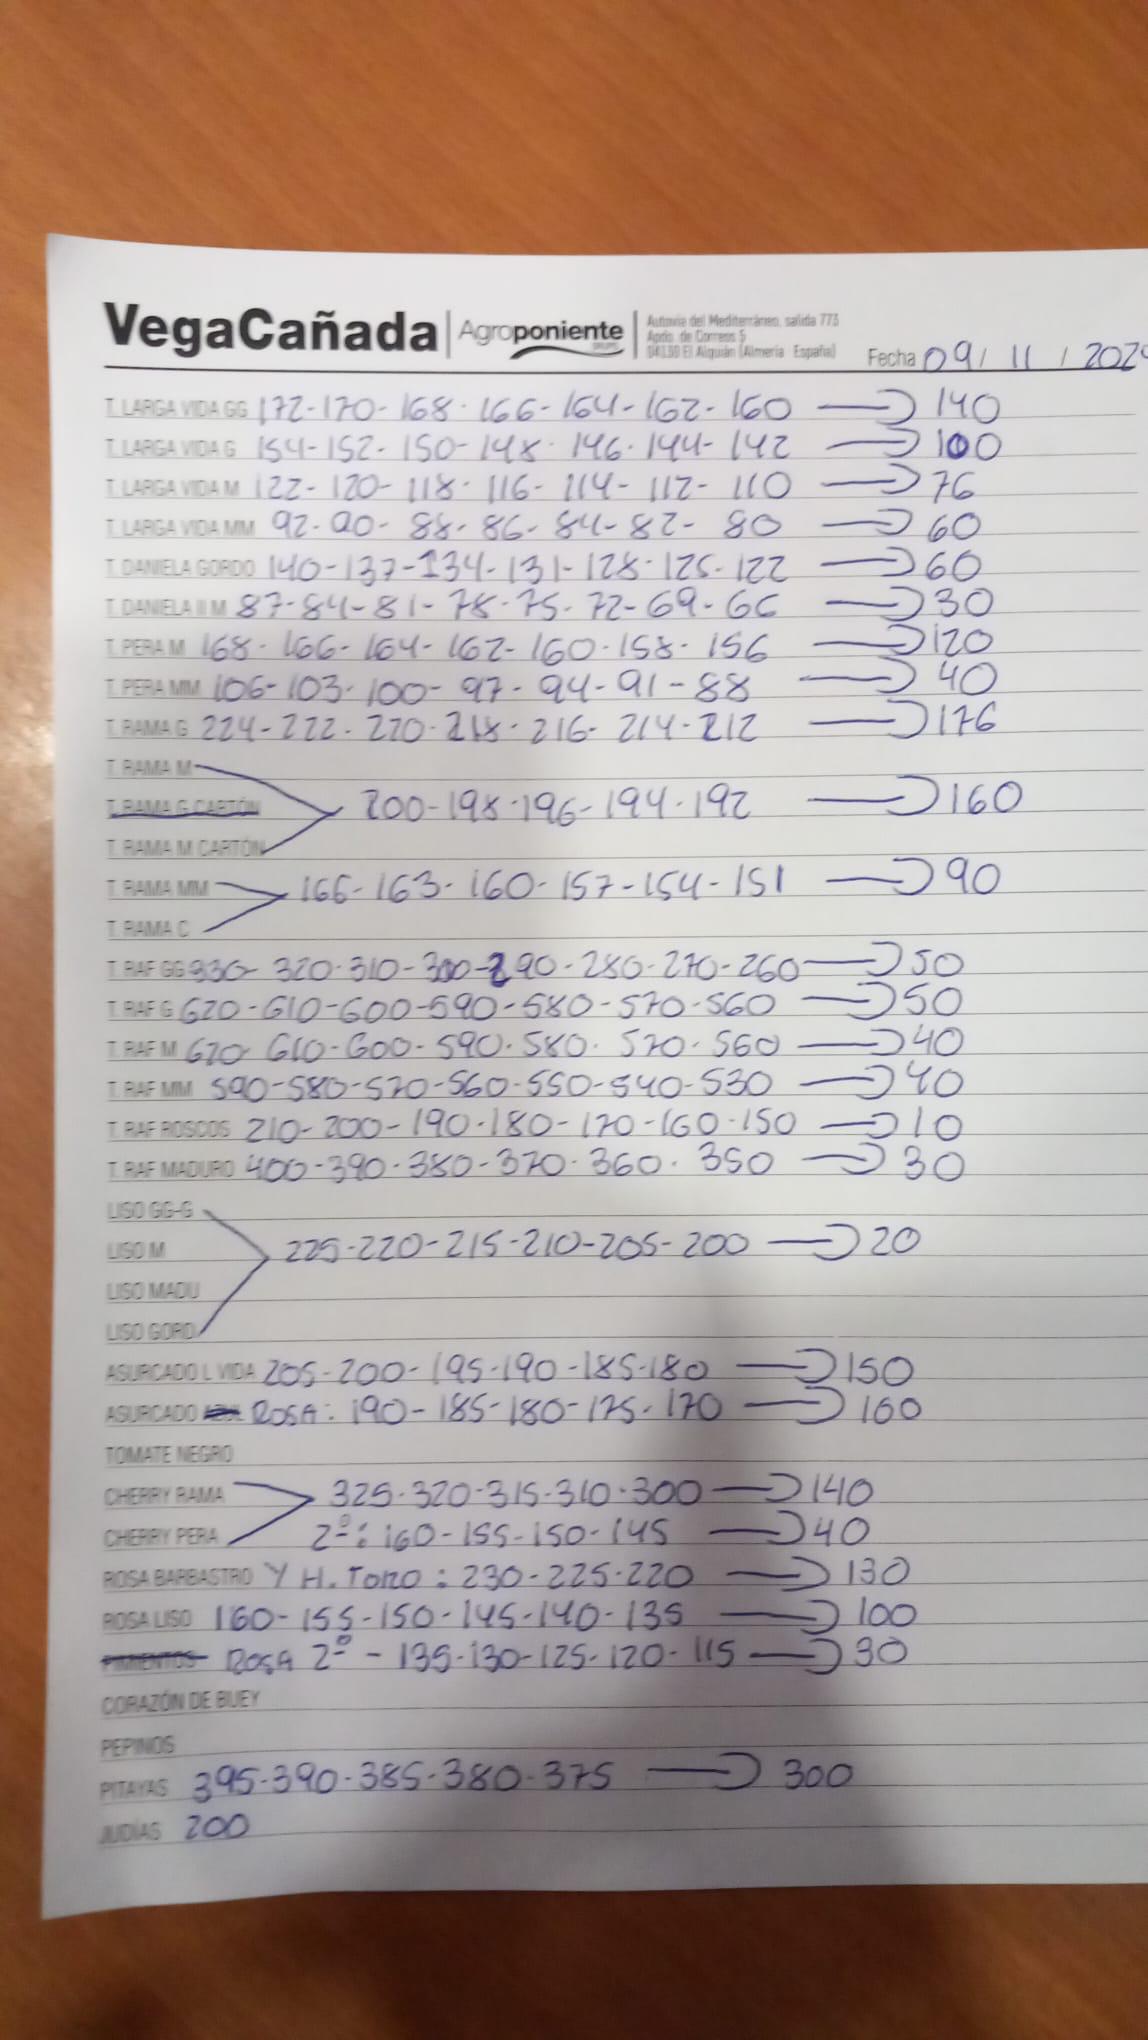 VegaCañada | Agroponiente GRUPO | Autovía del Mediterráneo, salida 773
Apdo. de Correos 5
04130 El Alquián (Almería España)
Fecha 09 / 11 / 2024
T. LARGA VIDA GG 172-170-168-166-164-162-160 → 140
T. LARGA VIDA G 154-152-150-148-146-144-142 → 100
T. LARGA VIDA M 122-120-118-116-114-112-110 → 76
T. LARGA VIDA MM 92-90-88-86-84-82-80 → 60
T. DANIELA GORDO 140-137-134-131-128-125-122 → 60
T. DANIELA II M 87-84-81-78-75-72-69-66 → 30
T. PERA M 168-166-164-162-160-158-156 → 120
T. PERA MM 106-103-100-97-94-91-88 → 40
T. RAMA G 224-222-220-218-216-214-212 → 176
T. RAMA M
T. RAMA G CARTÓN 200-198-196-194-192 → 160
T. RAMA M CARTÓN
T. RAMA MM 166-163-160-157-154-151 → 90
T. RAMA C
T. RAF GG 330-320-310-300-290-280-270-260 → 50
T. RAF G 620-610-600-590-580-570-560 → 50
T. RAF M 620-610-600-590-580-570-560 → 40
T. RAF MM 590-580-570-560-550-540-530 → 40
T. RAF ROSCOS 210-200-190-180-170-160-150 → 10
T. RAF MADURO 400-390-380-370-360-350 → 30
LISO GG-G
LISO M 225-220-215-210-205-200 → 20
LISO MADU
LISO GORD
ASURCADO L VIDA 205-200-195-190-185-180 → 150
ASURCADO ROSA: 190-185-180-175-170 → 160
TOMATE NEGRO
CHERRY RAMA 325-320-315-310-300 → 140
CHERRY PERA 2º: 160-155-150-145 → 40
ROSA BARBASTRO Y H. TORO: 230-225-220 → 130
ROSA LISO 160-155-150-145-140-135 → 100
PIMIENTOS ROSA 2º - 135-130-125-120-115 → 30
CORAZÓN DE BUEY
PEPINOS
PITAYAS 395-390-385-380-375 → 300
JUDÍAS 200